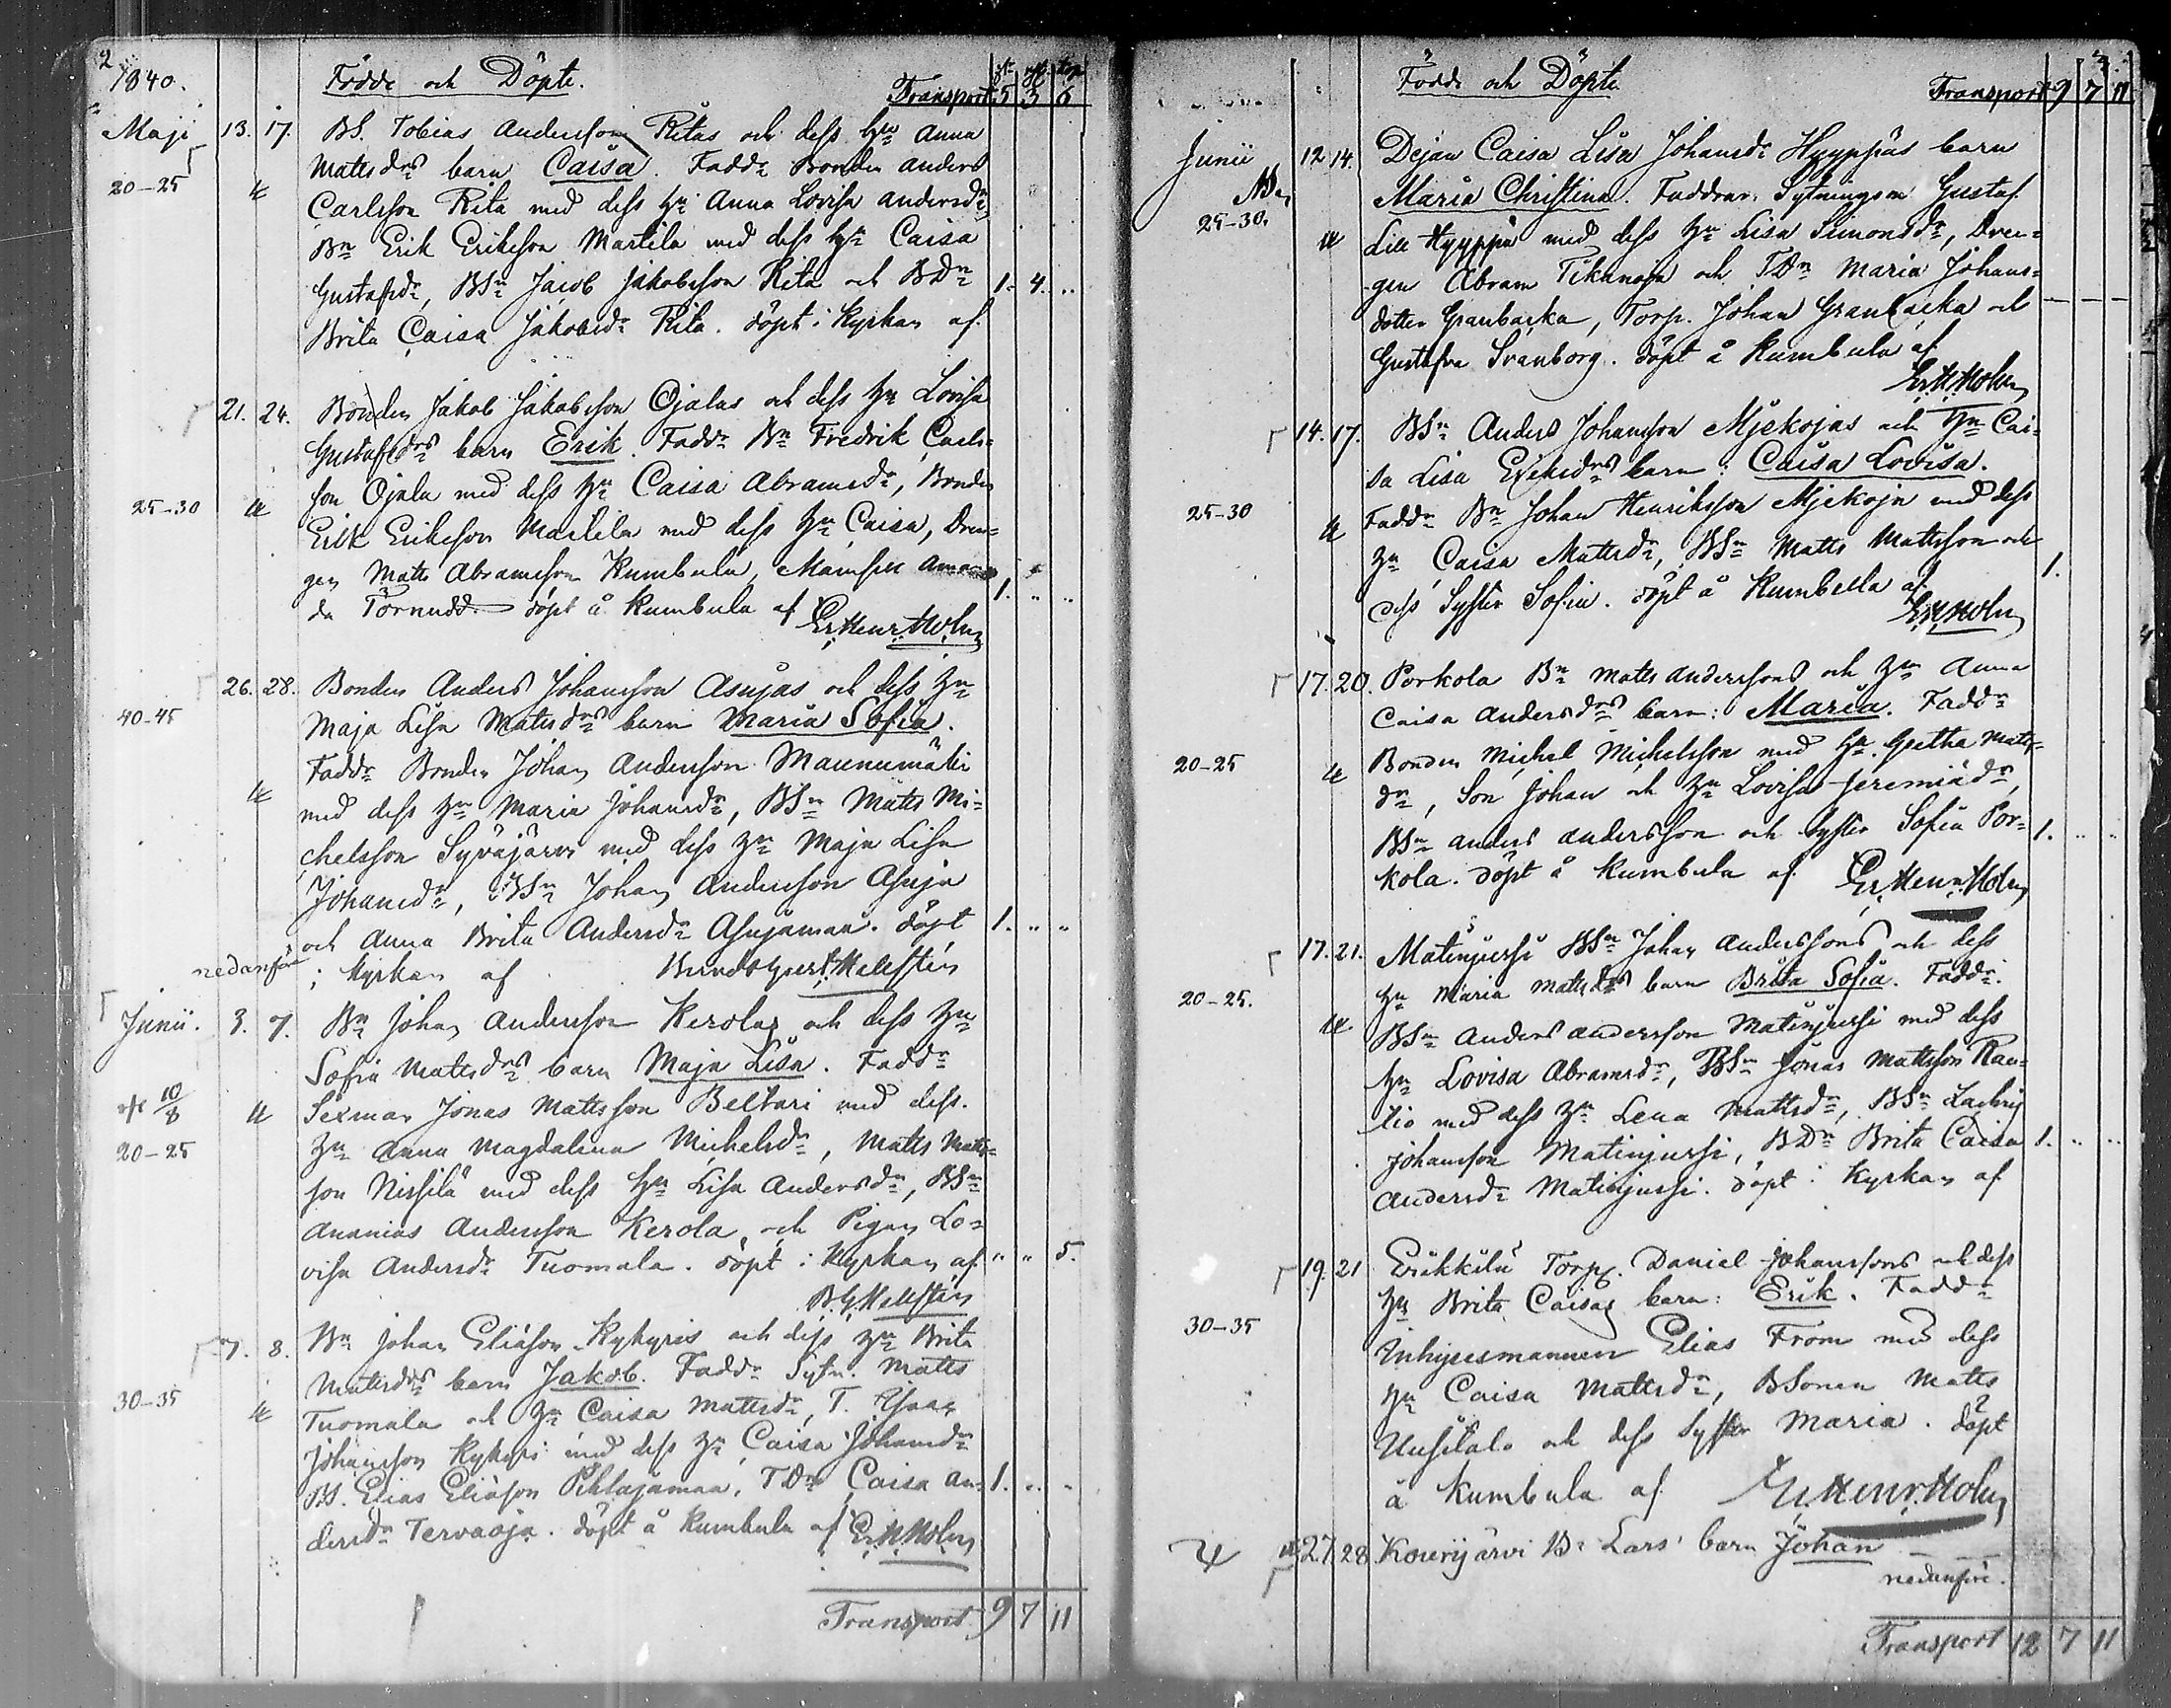 2
1840.
Födde och Döpte.
Transport 5 3 6
Maji 13. 17. BS. Tobias Andersson Ritas och dess h:u Anna
Mattsdrs barn Caisa. Fadd:r Bonden Anders
20-25 Carlsson Rita med dess h:u Anna Lovisa Andersd:r,
B:n Erik Eriksson Martila med dess h:u Caisa
Gustafsd:r, BS:n Jacob Jakobsson Rita och BD:n 1. 4. ..
Brita Caisa Jakobsd:r Rita. döpt i Kyrkan af
21. 24. Bonden Jakob Jakobsson Ojalas och dess h:u Lovisa
Gustafsdrs barn Erik. Fadd:r B:n Fredrik Carls=
25-30 son Ojala med dess h:u Caisa Abramsd:r, Bonden
Erik Eriksson Martila med dess h:u Caisa, Dren=
gen Matts Abramsson Kumbula, Mamsell Aman=
da Törnudd döpt å Kumbula af Er. Henr. Holm 1. .. ..
26. 28. Bonden Anders Johansson Asujas och dess h:u
40-45 Maja Lisa Matsdrs barn Maria Sofia.
Fadd:r Bonden Johan Andersson Maunumäki
med dess h:u Maria Johansd:r, BS:n Matts Mi=
chelsson Syväjärvi med dess h:u Maja Lisa
Johansd:r, BS:n Johan Andersson Asuja
och Anna Brita Andersd:r Asujamaa. döpt 1. .. ..
nedanföre i Kyrkan af Hellsten
Junii. 3. 7. B:n Johan Andersson Kerolas och dess h:u
Sofia Mattsdrs barn Maja Lisa. Fadd:r
10/8 Sexman Jonas Mattsson Beltari med dess
20-25 h:u Anna Magdalena Michelsd:r, Matts Matts=
son Nissilä med dess h:u Lisa Andersd:r, BS:n
Ananias Andersson Kerola, och Pigan Lo=
visa Andersd:r Tuomala. döpt i Kyrkan af .. .. 5.
B.G. Hellsten
7. 8. B:n Johan Eliasson Kykyris och dess h:u Brita
Mattsdrs barn Jakob. Fadd:r Sytn. Matts
30-35 Tuomala och h:u Caisa Mattsd:r, T. Isaac
Johansson Kykyri med dess h:u Caisa Johansd:r
BS. Elias Eliasson Pihlajamaa, TD:n Caisa An= 1. .. ..
dersd:r Tervaoja. döpt å Kumbula af Er. H. Holm
Transport 9 7 11
Födde och Döpte.
Transport 9 7 11
Junii 12 14. Dejan Caisa Lisa Johansd:r Hyyppäs barn
Maria Christina. Faddrar: Sytningsm Gustaf
25-30. Lill Hyyppä med dess h:u Lisa Simonsd:r, Dren=
gen Abram Tikanoja och TD:n Maria Johans=
dotter Granbacka, Torp. Johan Granbacka och
Gustafva Svanborg. döpt å Kumbula af
Er. H. Holm
14. 17. BS:n Anders Johansson Mjekojas och h:u Cai=
sa Lisa Eriksdrs barn: Caisa Lovisa.
25-30 Fadd:r B:n Johan Henriksson Mjekoja med dess
h:u Caisa Mattsd:r, BS:n Matts Mattsson och
dess Syster Sofia. döpt å Kumbula af 1.
Er. H. Holm
17. 20. Porkola B:n Matts Anderssons och h:u Anna
Caisa Andersdrs barn: Maria. Fadd:r
20-25 Bonden Michel Michelsson med h:u Gretha Matts=
d:r, Son Johan och h:u Lovisa Jeremiæd:r,
BS:n Anders Andersson och syster Sofia Por= 1. .. ..
kola. döpt å Kumbula af Er. Henr. Holm
17. 21. Matinjussi BS:n Johan Anderssons och dess
20-25. h:u Maria Mattsdrs barn Brita Sofia. Fadd:r.
BS:n Anders Andersson Matinjussi med dess
h:u Lovisa Abramsd:r, BS:n Jonas Mattsson Rau=
tio med dess h:u Lena Mattsd:r, BS:n Zachris
Johansson Matinjussi, BD:n Brita Caisa 1. .. ..
Andersd:r Matinjussi. döpt i Kyrkan af
19. 21 Erikkilä Torp. Daniel Johanssons och dess
h:u Brita Caisas barn: Erik. Fadd:r
30-35 Inhysesmannen Elias From med dess
h:u Caisa Mattsd:r, BSonen Matts
Uusitalo och dess Syster Maria. döpt
å Kumbula af Er. Henr. Holm
27 28 Kouvijärvi B: Lars' barn Johan
nedanföre.
Transport 12 7 11